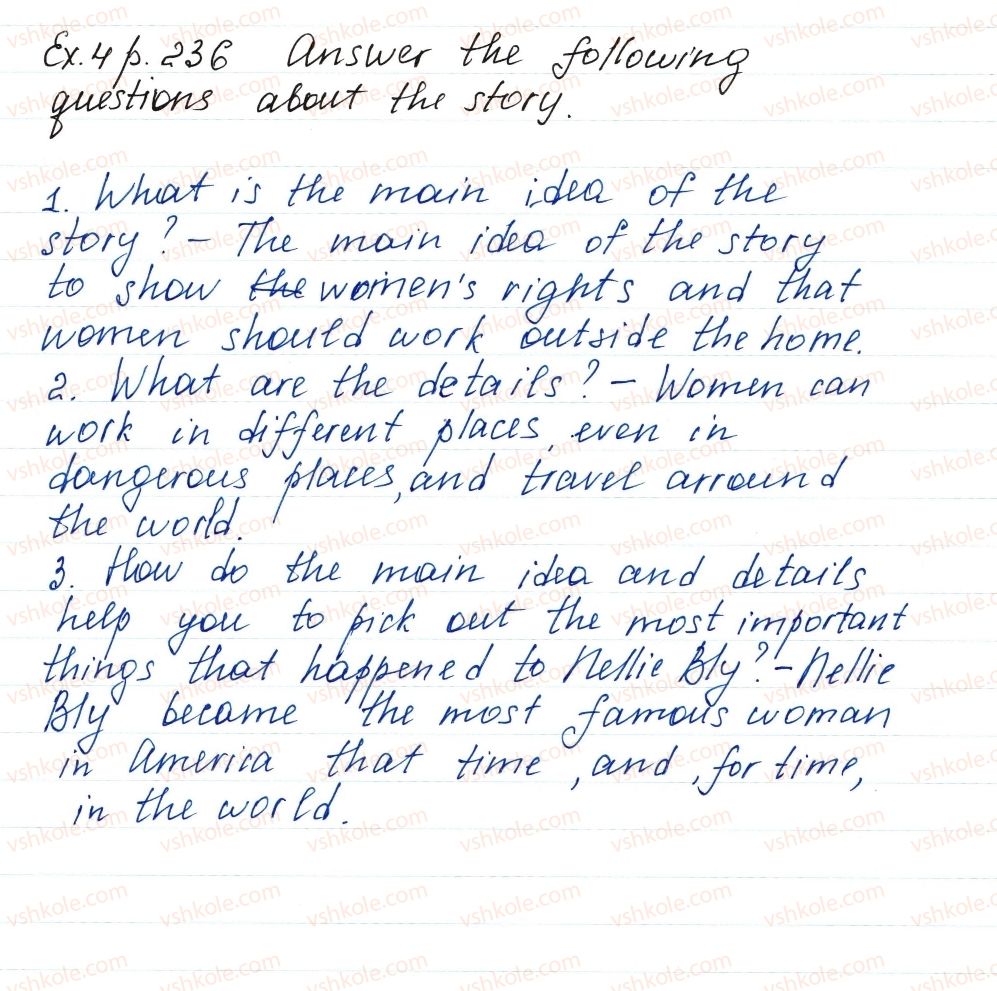 Ex.4 p.236 Answer the following
questions about the story.
1. What is the main idea of the
story? – The main idea of the story
to show the women's rights and that
women should work outside the home.
2. What are the details? – Women can
work in different places, even in
dangerous places, and travel arround
the world.
3. How do the main idea and details
help you to pick out the most important
things that happened to Nellie Bly? – Nellie
Bly became the most famous woman
in America that time, and, for time,
in the world.